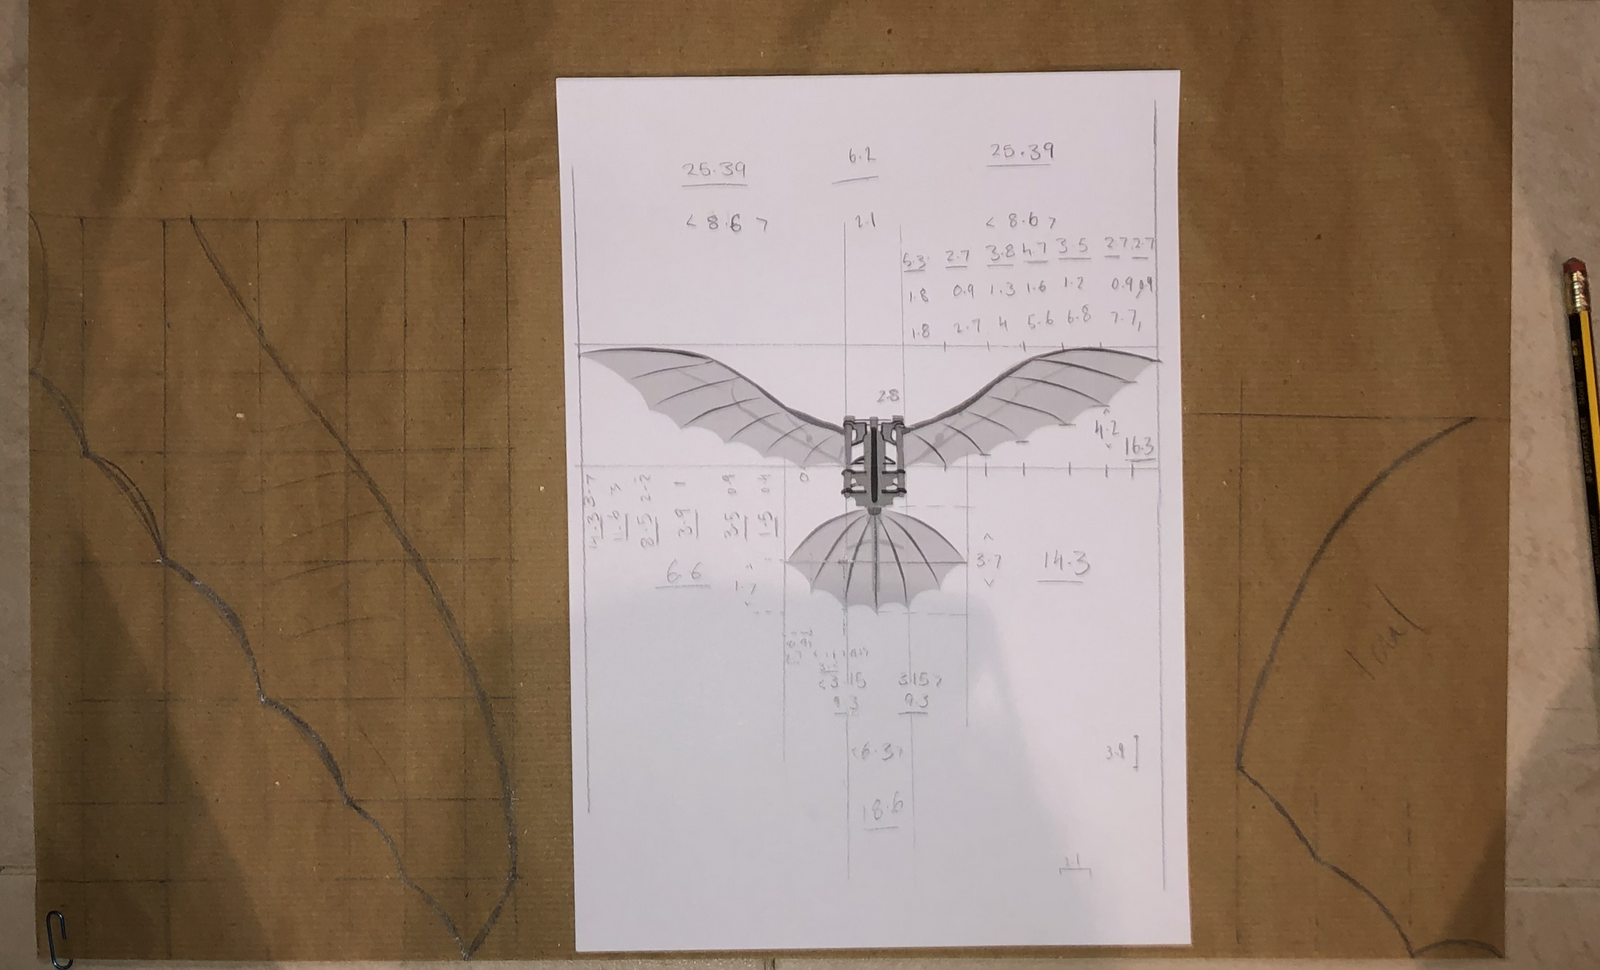 25.39 6.2 25.39
< 8.6 > 2.1 < 8.6 >
5.3 2.7 3.8 4.7 3.5 2.7 2.7
1.8 0.9 1.3 1.6 1.2 0.9, 0.9
1.8 2.7 4 5.6 6.8 7.7,
2.8
4.2
16.3
14.3 3.7
11.6 3
8.5 2.2
3.9 1
3.5 0.9
1.5 0.4
6.6
1.7
3.7 14.3
<3.15 3.15>
9.3 9.3
<6.3>
18.6
3.9
1.1